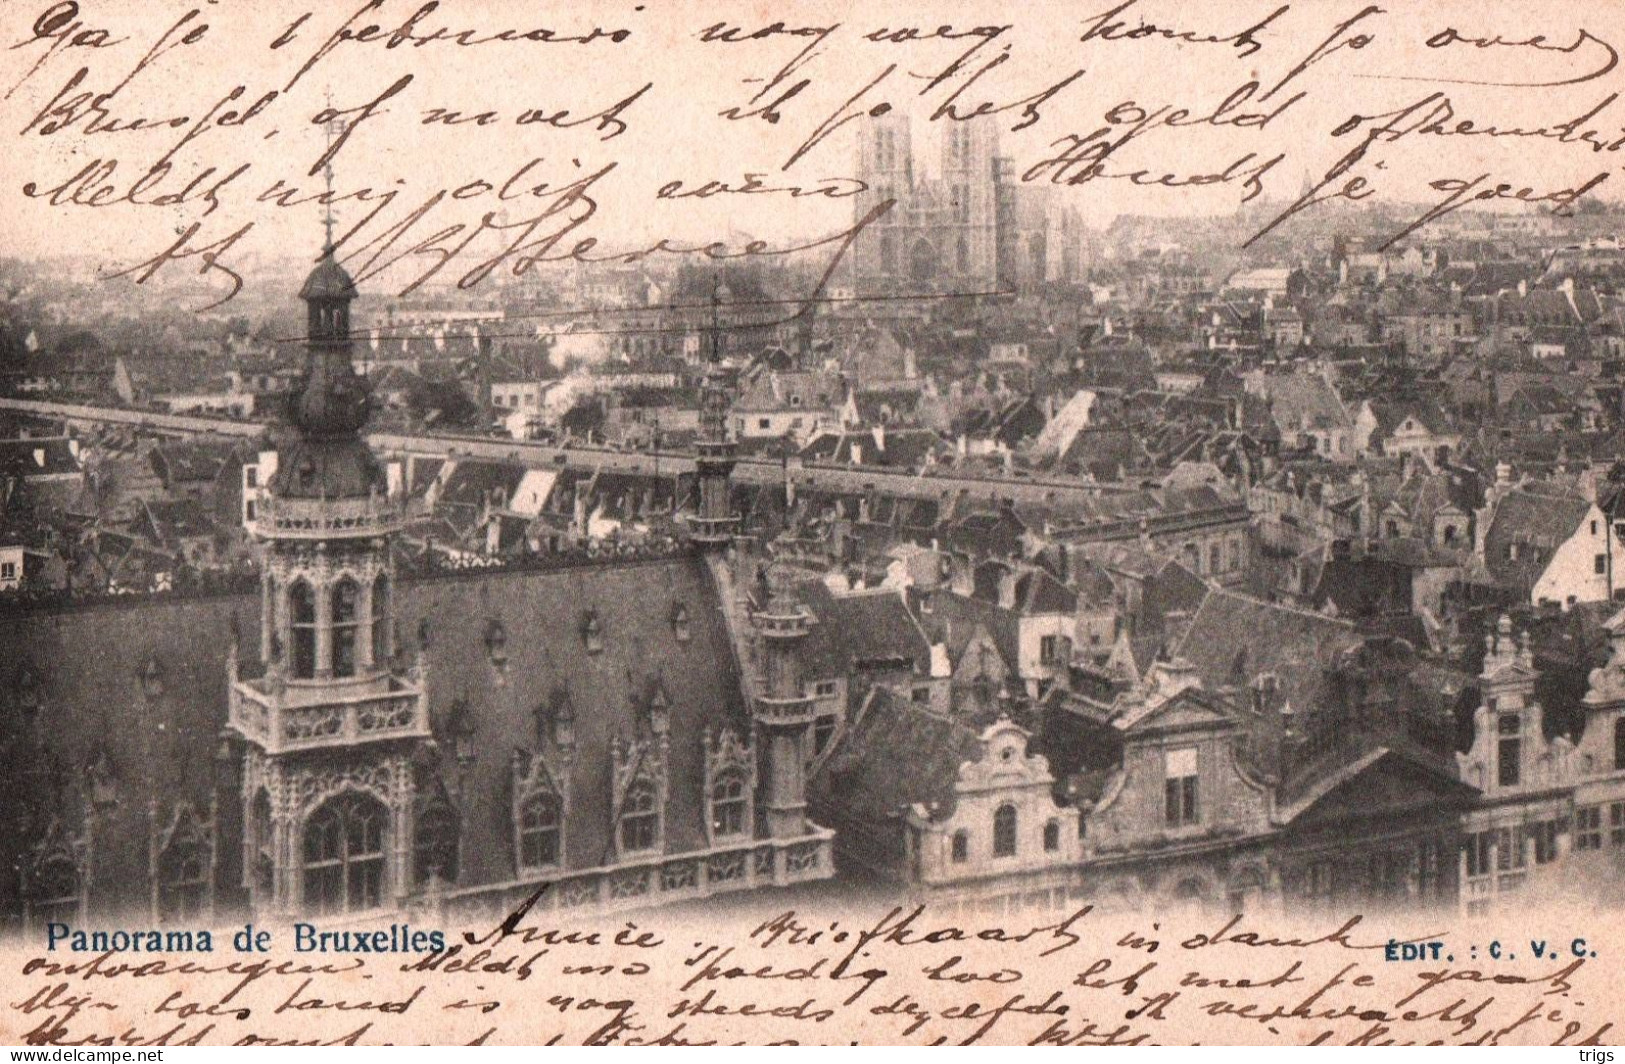 Ga je 1 februari nog weg komt je over
Brussel, of moet ik je het geld afzenden
Meldt mij dit even Houdt je goed
tt
Panorama de Bruxelles
ÉDIT. : C. V. C.
Annie. Briefkaart in dank
ontvangen. Meldt me spoedig hoe het met je gaat
Mijn toestand is nog steeds dezelfde. Ik verwacht je
1 Februari
delcampe.net
trigs